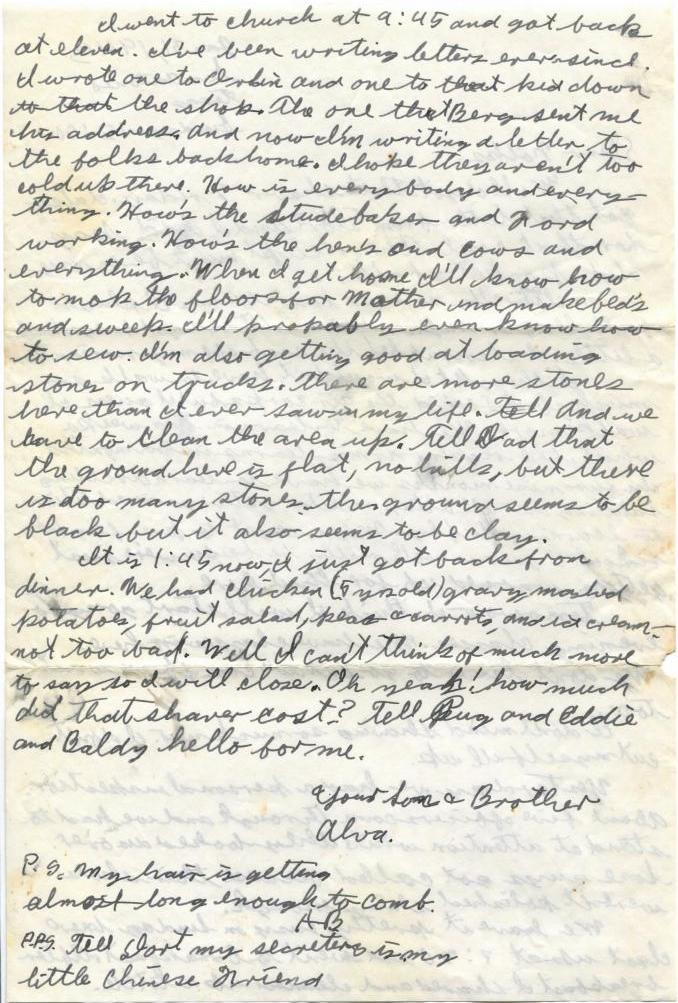 I went to church at 9:45 and got back
at eleven. I've been writing letters ever since.
I wrote one to Orbin and one to that kid down
to that the shop. The one that Berg sent me
his address. And now I'm writing a letter to
the folks back home. I hope they aren't too
cold up there. How is everybody and every-
thing. How's the Studebaker and Ford
working. How's the hen's and cows and
everything. When I get home I'll know how
to mop the floors for Mother and make bed's
and sweep. I'll probably even know how
to sew. I'm also getting good at loading
stones on trucks. There are more stones
here than I ever saw in my life. Tell And we
have to clean the area up. Tell Dad that
the ground here is flat, no hills, but there
is too many stones. the ground seems to be
black but it also seems to be clay.
It is 1:45 now, I just got back from
dinner. We had chicken (5 yrs old) gravy mashed
potatoes, fruit salad, peas & carrots, and ice cream-
not too bad. Well I can't think of much more
to say so I will close. Oh yeah! how much
did that shaver cost? Tell Pug and Eddie
and Baldy hello for me.
Your Son & Brother
Alva.
P.S. My hair is getting
almost long enough to comb.
AB
P.P.S. Tell Dort my secretery is my
little Chinese Friend